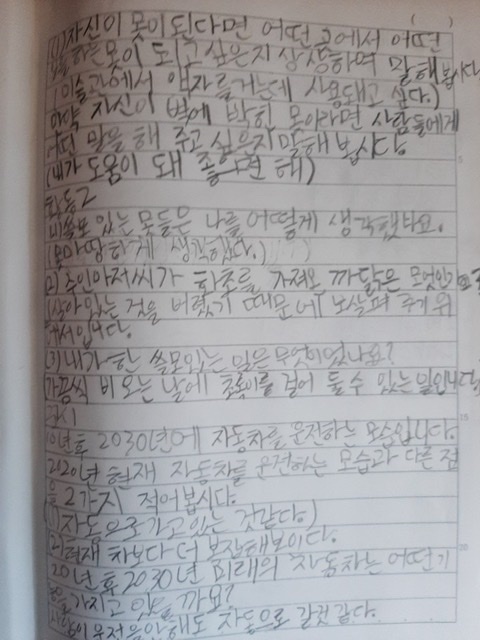 (1) 자신이 못이 된다면 어떤 곳에서 어떤
일을 하는 못이 되고 싶은지 상상하여 말해 봅시다
(미술관에서 액자를 거는데 사용돼고 싶다.)
만약 자신이 벽에 박힌 못이라면 사람들에게
어떤 말을 해 주고 싶은지 말해 봅시다
(내가 도움이 돼 좋으면 해)
활동2
비쓸모 있는 못들은 나를 어떻게 생각했나요.
(못마땅하게 생각했다.)
(2) 주인아저씨가 화초를 가져온 까닭은 무엇인가요
(살아있는 것을 버렸기 때문에 보살펴 주기 위
해서입니다.
(3) 내가 한 쓸모있는 일은 무엇이었나요?
가끔씩 비 오는 날에 초롱이를 걸어 둘 수 있는 일입니다
10년 후 2030년에 자동차를 운전하는 모습입니다.
2020년 현재 자동차를 운전하는 모습과 다른 점
을 2가지 적어봅시다.
(1) 자동으로 가고 있는 것같다.)
(2) 현재 차보다 더 복잡해보이다.
20년 후 2030년 미래의 자동차는 어떤 기
능을 가지고 있을까요?
사람이 운전을 안해도 자동으로 갈것 같다.